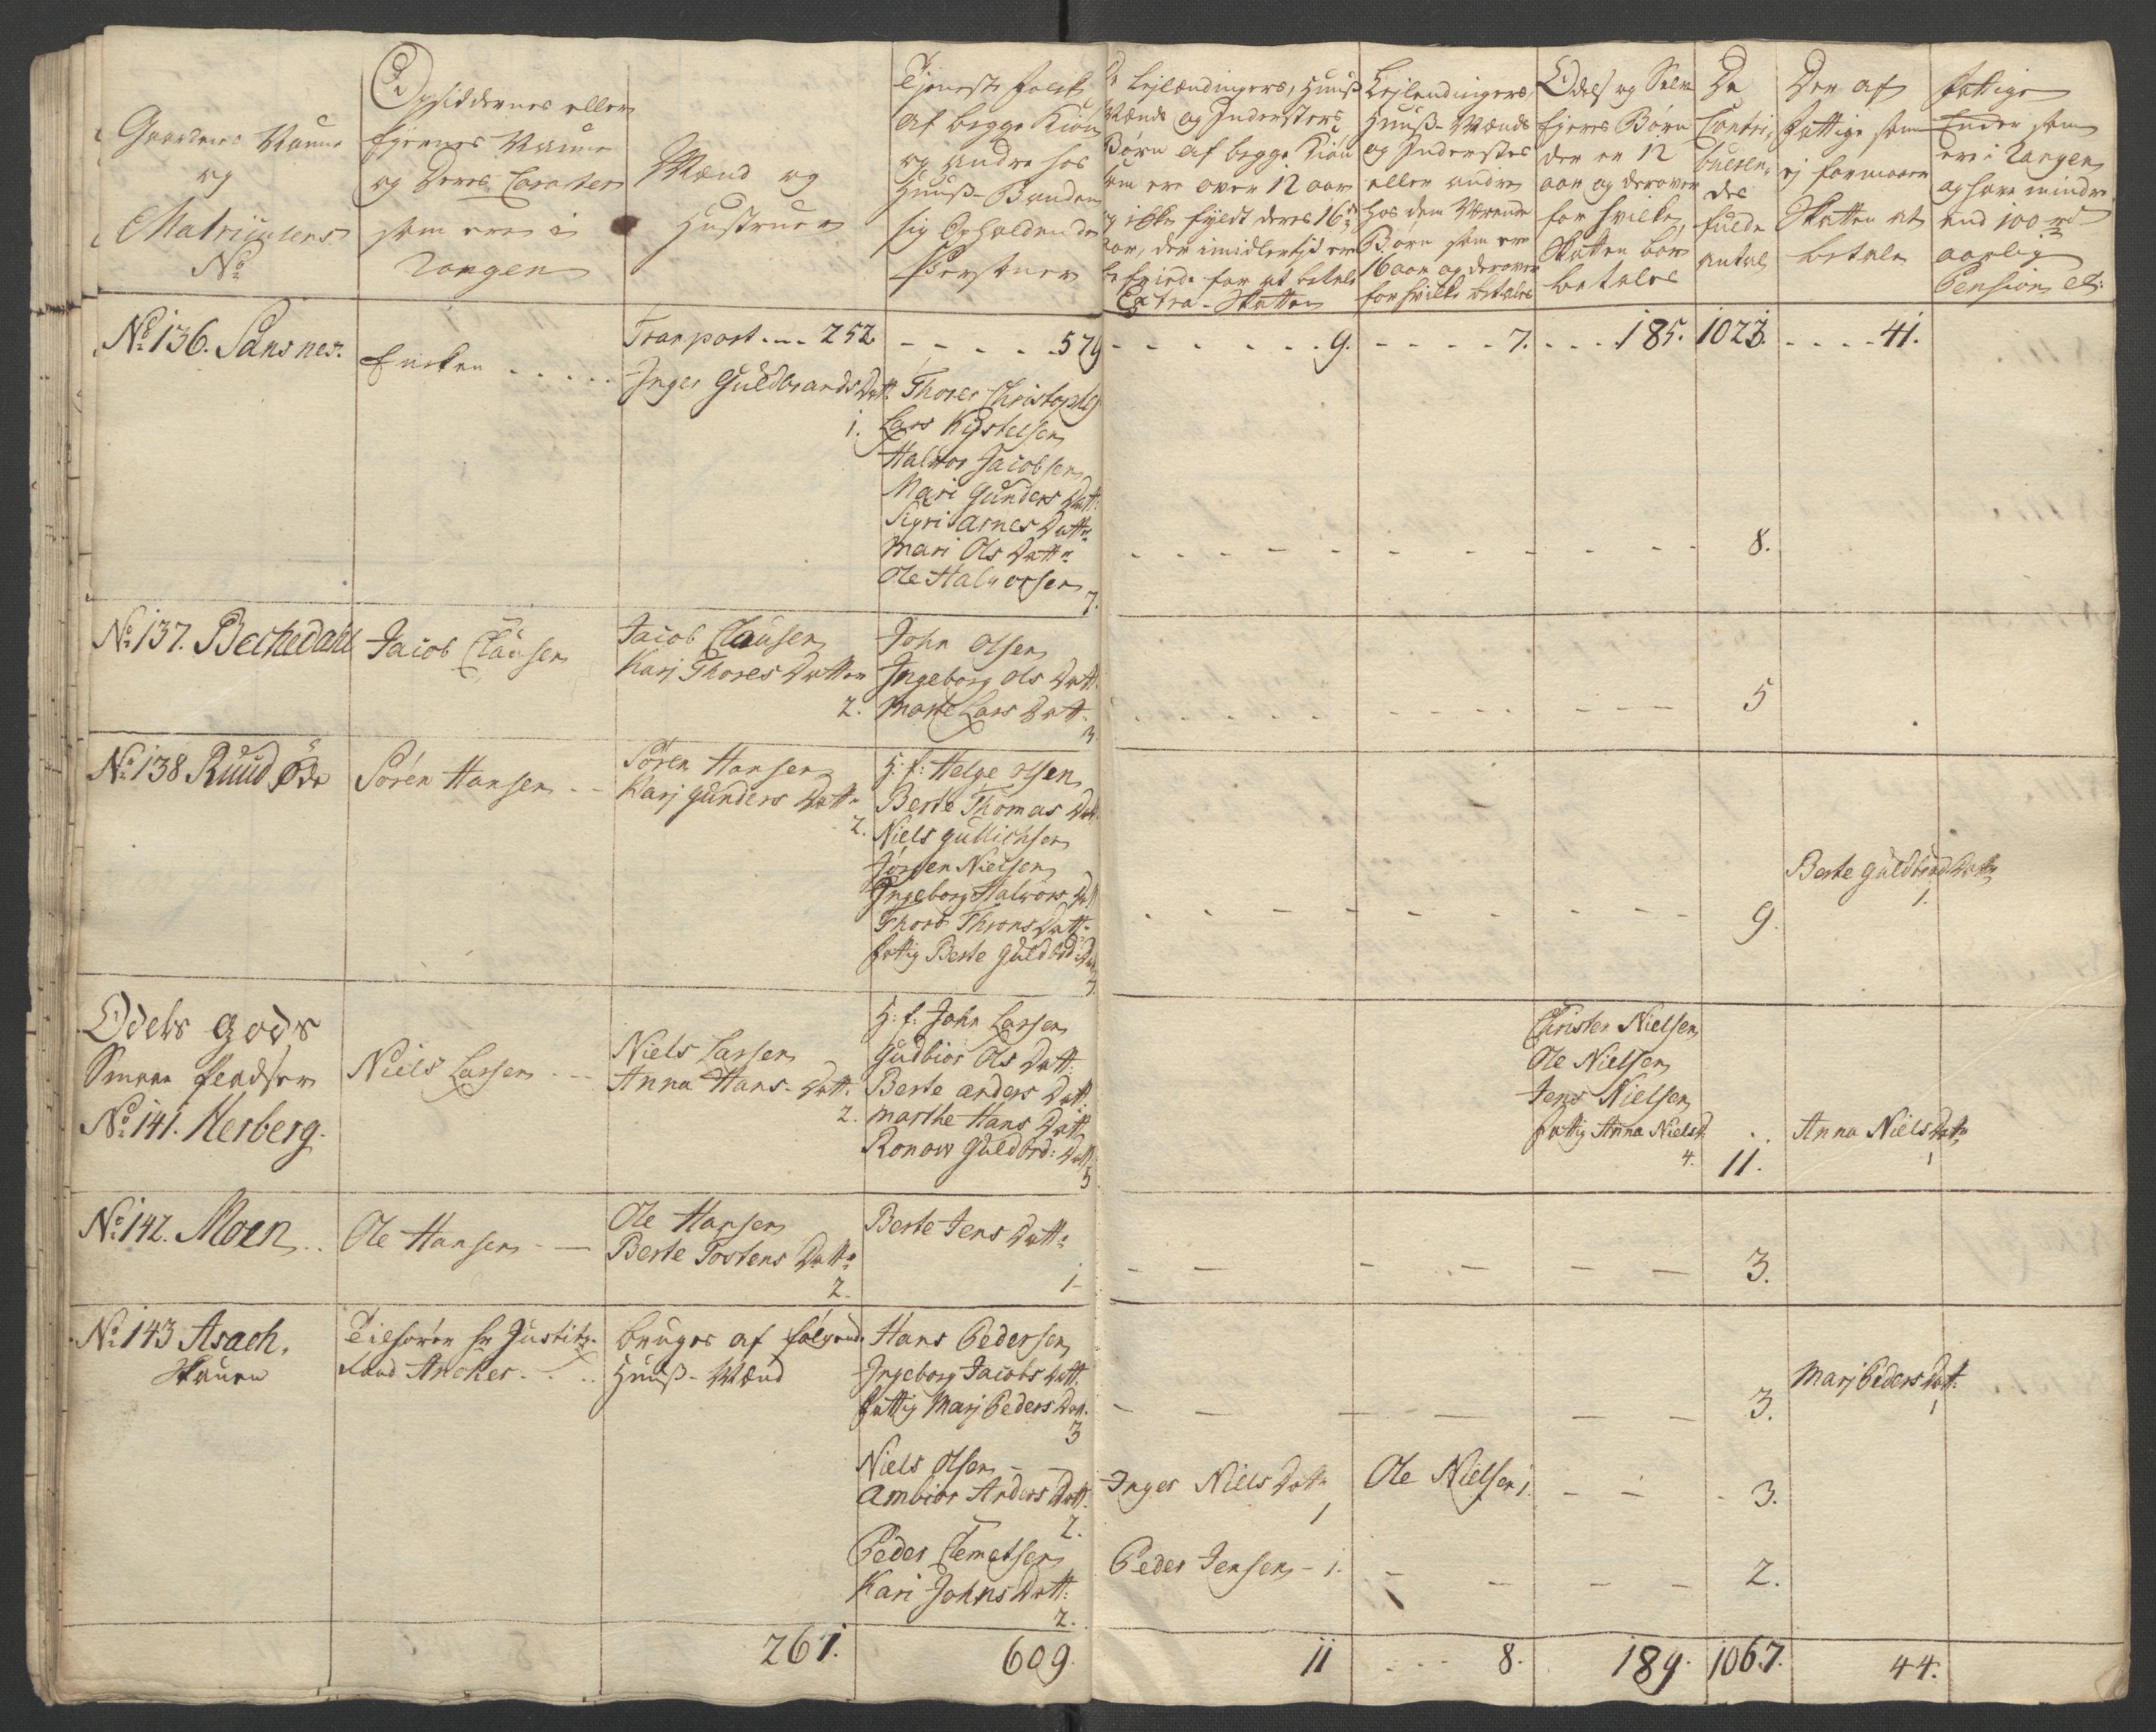 Gaardens Nafne
og
Matriculens
No
Opsiddernes eller
Eyernes Nafne
og Deres Caracter
som ere i
Rangen
Mænd og
Hustruer
Tjeneste Folk
af begge Kiøn
og andre hos
Huuß-Bonden
sig Opholdende
Persohner
Lejlændingers, Huuß
Mænds og Indersters
Børn af begge Kiøn
som ere over 12 aar
og ikke fyldt deres 16de
aar, der imidlertid ere
for at betale
Extra-Skatten
Lejlendingers,
Huuß-Mænds
og Inderstes
eller andre
hos dem Værende
Børn som ere
16 aar og derover
for hvilke betales
Odels og Selv
Ejeres Børn
der er 12
aar og derover
for hvilke
Skatten bør
betales
De
Contri-
bueren-
des
fulde
antal
Den af
Fattige som
ej formaaer
Skatten at
betale
Fattige
Enker som
ere i Rangen
og have mindre
end 100 rd
aarlig
Pension etc:
No 136. Sansnes. Enken Tranport 252. 579 9. 7. 185. 1023. 41.
Inger GuldbrandsDatt: 1.
Thorer Christophs
Lars Kystelsen
Halvor Jacobsen
Mari Gunders Datt:
Sigri Arnes Datter
Mari Ols Datter
Ole Halvorsen 7.
8.
No 137. Bechedahl Jacob Clausen
Jacob Clausen
Karj Thores Datter
2.
John Olsen
Ingeborg Ols Datt:
Marte Lars Datt:
3.
5
No 138 Ruud Øde Søren Hansen
Søren Hansen
Karj Gunders Datter
2.
H: f: Helge Olsen
Berte Thomas Dat
Niels Gullichsen
Jørgen Nielsen
Ingeborg Halvors Dtt
Thore Throns Datt:
fattig Berte Guldbrd: Dat
7
9.
Berte Guldbrd Datter
1.
Odels Gods
No 141. Herberg.
Niels Larsen
Niels Larsen
Anna Hans-Datt:
2.
H: f: John Larsen
Gudbiør Ols Datt:
Berte Anders Datt:
Marthe Hans Datt:
Ronow Guldbrd: Datt:
5
Christen Nielsen
Ole Nielsen
Jens Nielsen
fattig Anna Nielsd
4.
11.
Anna Niels Datter
1
No 142. Moen Ole Hansen
Ole Hansen
Berte Tostens Datter
2.
Berte Jens Datter
1
3.
No 143 Asach,
Skauen
Tilhører Hr Justitz-
Raad Ancker
bruges af følgende
Huuß-Mænd
Hans Pedersen
Ingeborg Jacobs Datt:
fattig Marj Peders Dat:
3
3.
Marj Peders Datt:
1
Niels Olsen
Ambiør Anders Datt:
2.
Inger Niels Datter
1
Ole Nielsen 1.
3.
Peder Clemetsen
Kari Johns Datt:
2.
Peder Jensen - 1.
2.
267. 609. 11 8. 189. 1067. 44.